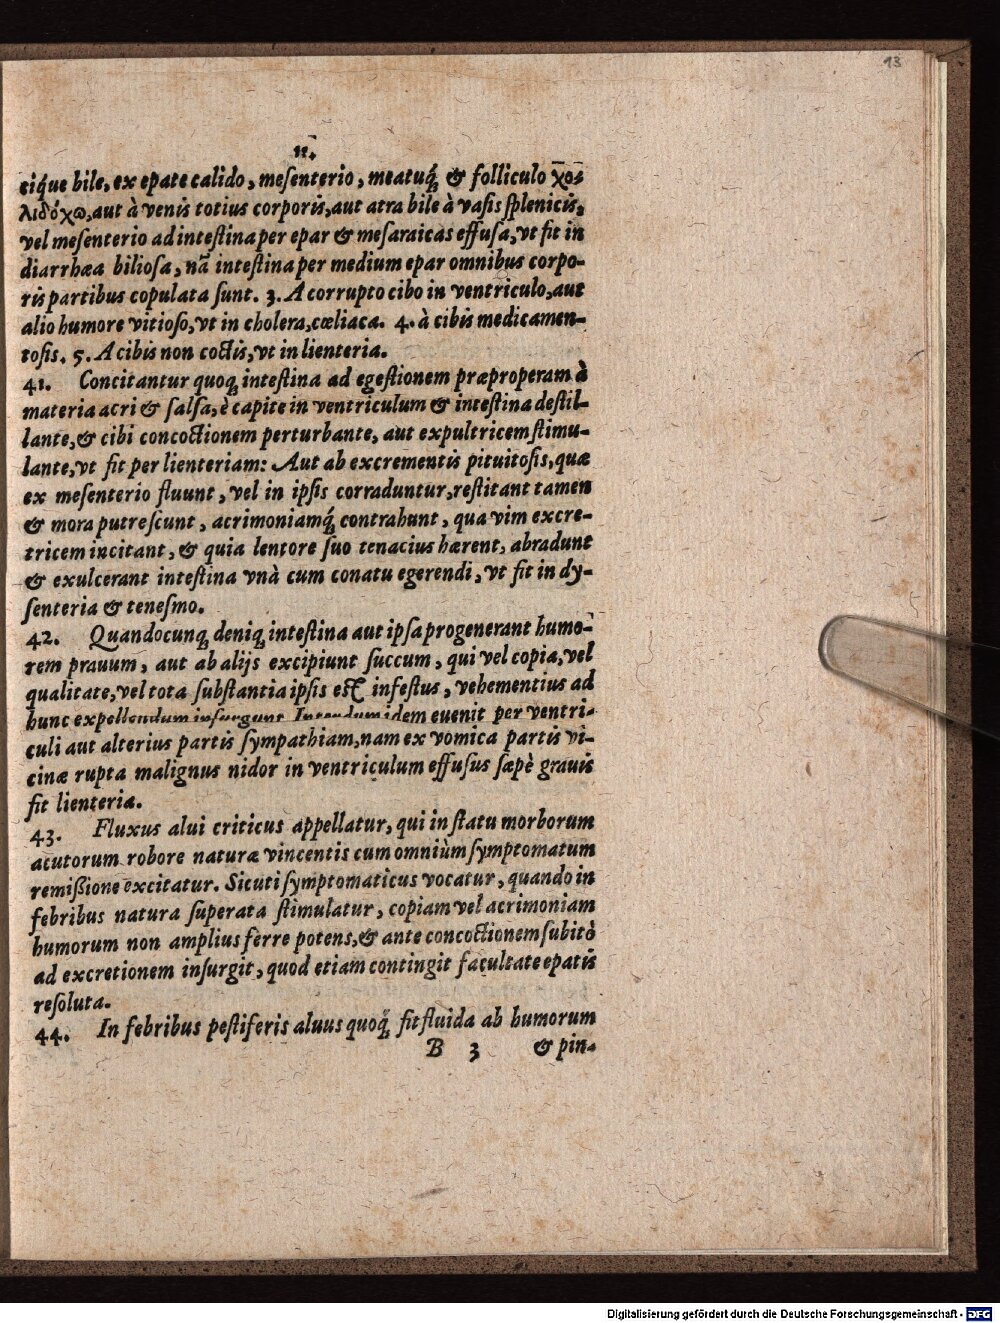 13
11.
ciq́ue bile, ex epate calido, meſenterio, meatuq́; & folliculo χο-
λιδόχῳ, aut à venis totius corporis, aut atra bile à vaſis ſplenicis,
vel meſenterio ad inteſtina per epar & meſaraicas effuſa, vt fit in
diarrhæa bilioſa, nã inteſtina per medium epar omnibus corpo-
ris partibus copulata ſunt. 3. A corrupto cibo in ventriculo, aut
alio humore vitioſo, vt in cholera, cœliaca. 4. à cibis medicamen-
toſis. 5. A cibis non coctis, vt in lienteria.
41. Concitantur quoq; inteſtina ad egeſtionem præproperam à
materia acri & ſalſa, è capite in ventriculum & inteſtina deſtil-
lante, & cibi concoctionem perturbante, aut expultricem ſtimu-
lante, vt fit per lienteriam: Aut ab excrementis pituitoſis, quæ
ex meſenterio fluunt, vel in ipſis corraduntur, reſtitant tamen
& mora putreſcunt, acrimoniamq́; contrahunt, qua vim excre-
tricem incitant, & quia lentore ſuo tenacius hærent, abradunt
& exulcerant inteſtina vnà cum conatu egerendi, vt fit in dy-
ſenteria & teneſmo.
42. Quandocunq; deniq; inteſtina aut ipſa progenerant humo-
rem prauum, aut ab alijs excipiunt ſuccum, qui vel copia, vel
qualitate, vel tota ſubſtantia ipſis eſt infeſtus, vehementius ad
hunc expellendum inſurgunt. Interdum idem euenit per ventri-
culi aut alterius partis ſympathiam, nam ex vomica partis vi-
cinæ rupta malignus nidor in ventriculum effuſus ſæpè grauis
fit lienteria.
43. Fluxus alui criticus appellatur, qui in ſtatu morborum
acutorum robore naturæ vincentis cum omniùm ſymptomatum
remißione excitatur. Sicuti ſymptomaticus vocatur, quando in
febribus natura ſuperata ſtimulatur, copiam vel acrimoniam
humorum non amplius ferre potens, & ante concoctionem ſubitò
ad excretionem inſurgit, quod etiam contingit facultate epatis
reſoluta.
44. In febribus peſtiferis aluus quoq́; fit fluida ab humorum
B 3 & pin-
Digitalisierung gefördert durch die Deutsche Forschungsgemeinschaft - DFG